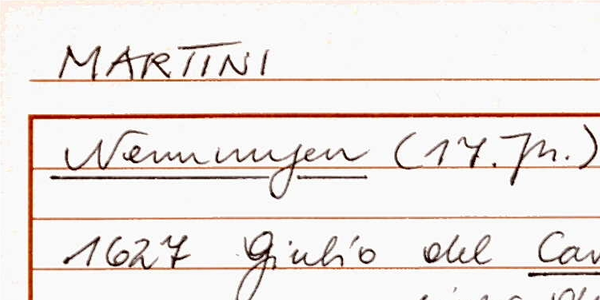 MARTINI
Nennungen (17. Jh.)
1627 Giulio del